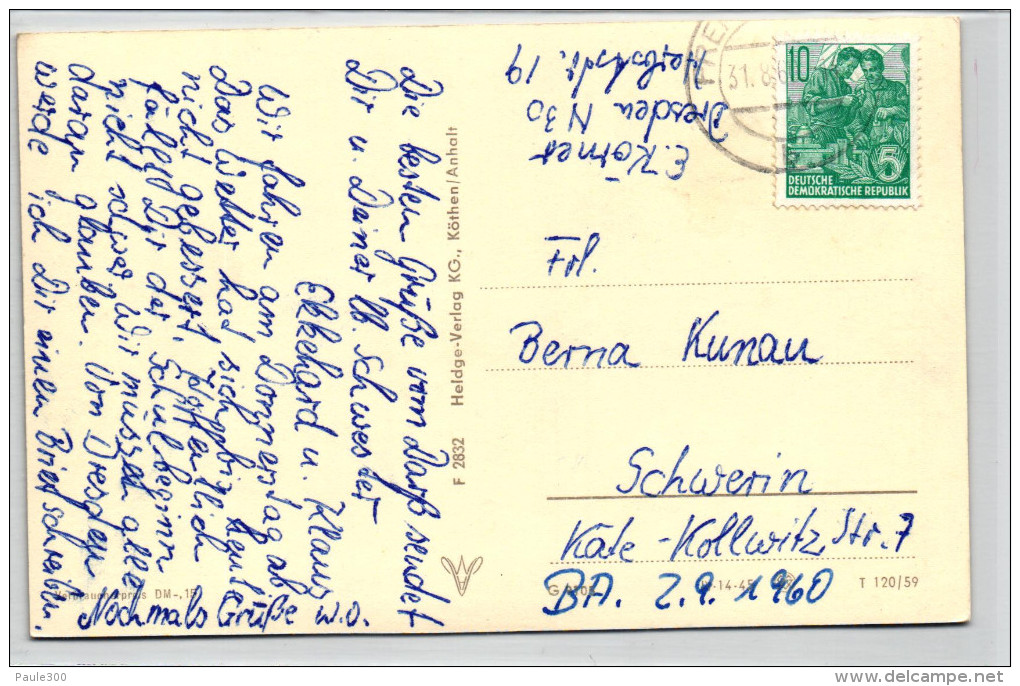 Die besten Grüße vom Darß sendet
Dir u. Deiner lb. Schwester
Ekkehard u. Klaus
Wir fahren am Donnerstag ab
Das Wetter hat sich bis heute
nicht gebessert. Hoffentlich
fällt Dir der Schulbeginn
nicht schwer. Wir müssen alle
daran glauben. Von Dresden
werde ich Dir einen Brief schreiben.
Nochmals Grüße w.o.
F 2832 Heldge-Verlag KG., Köthen/Anhalt
Verbraucherpreis DM-,15
E. Körner
Dresden N 30
31.8.6
10
5
DEUTSCHE
DEMOKRATISCHE REPUBLIK
Frl.
Berna Kunau
Schwerin
Käte-Kollwitz Str. 7
BA. 2.9.1960
T 120/59
Paule300
delcampe.net